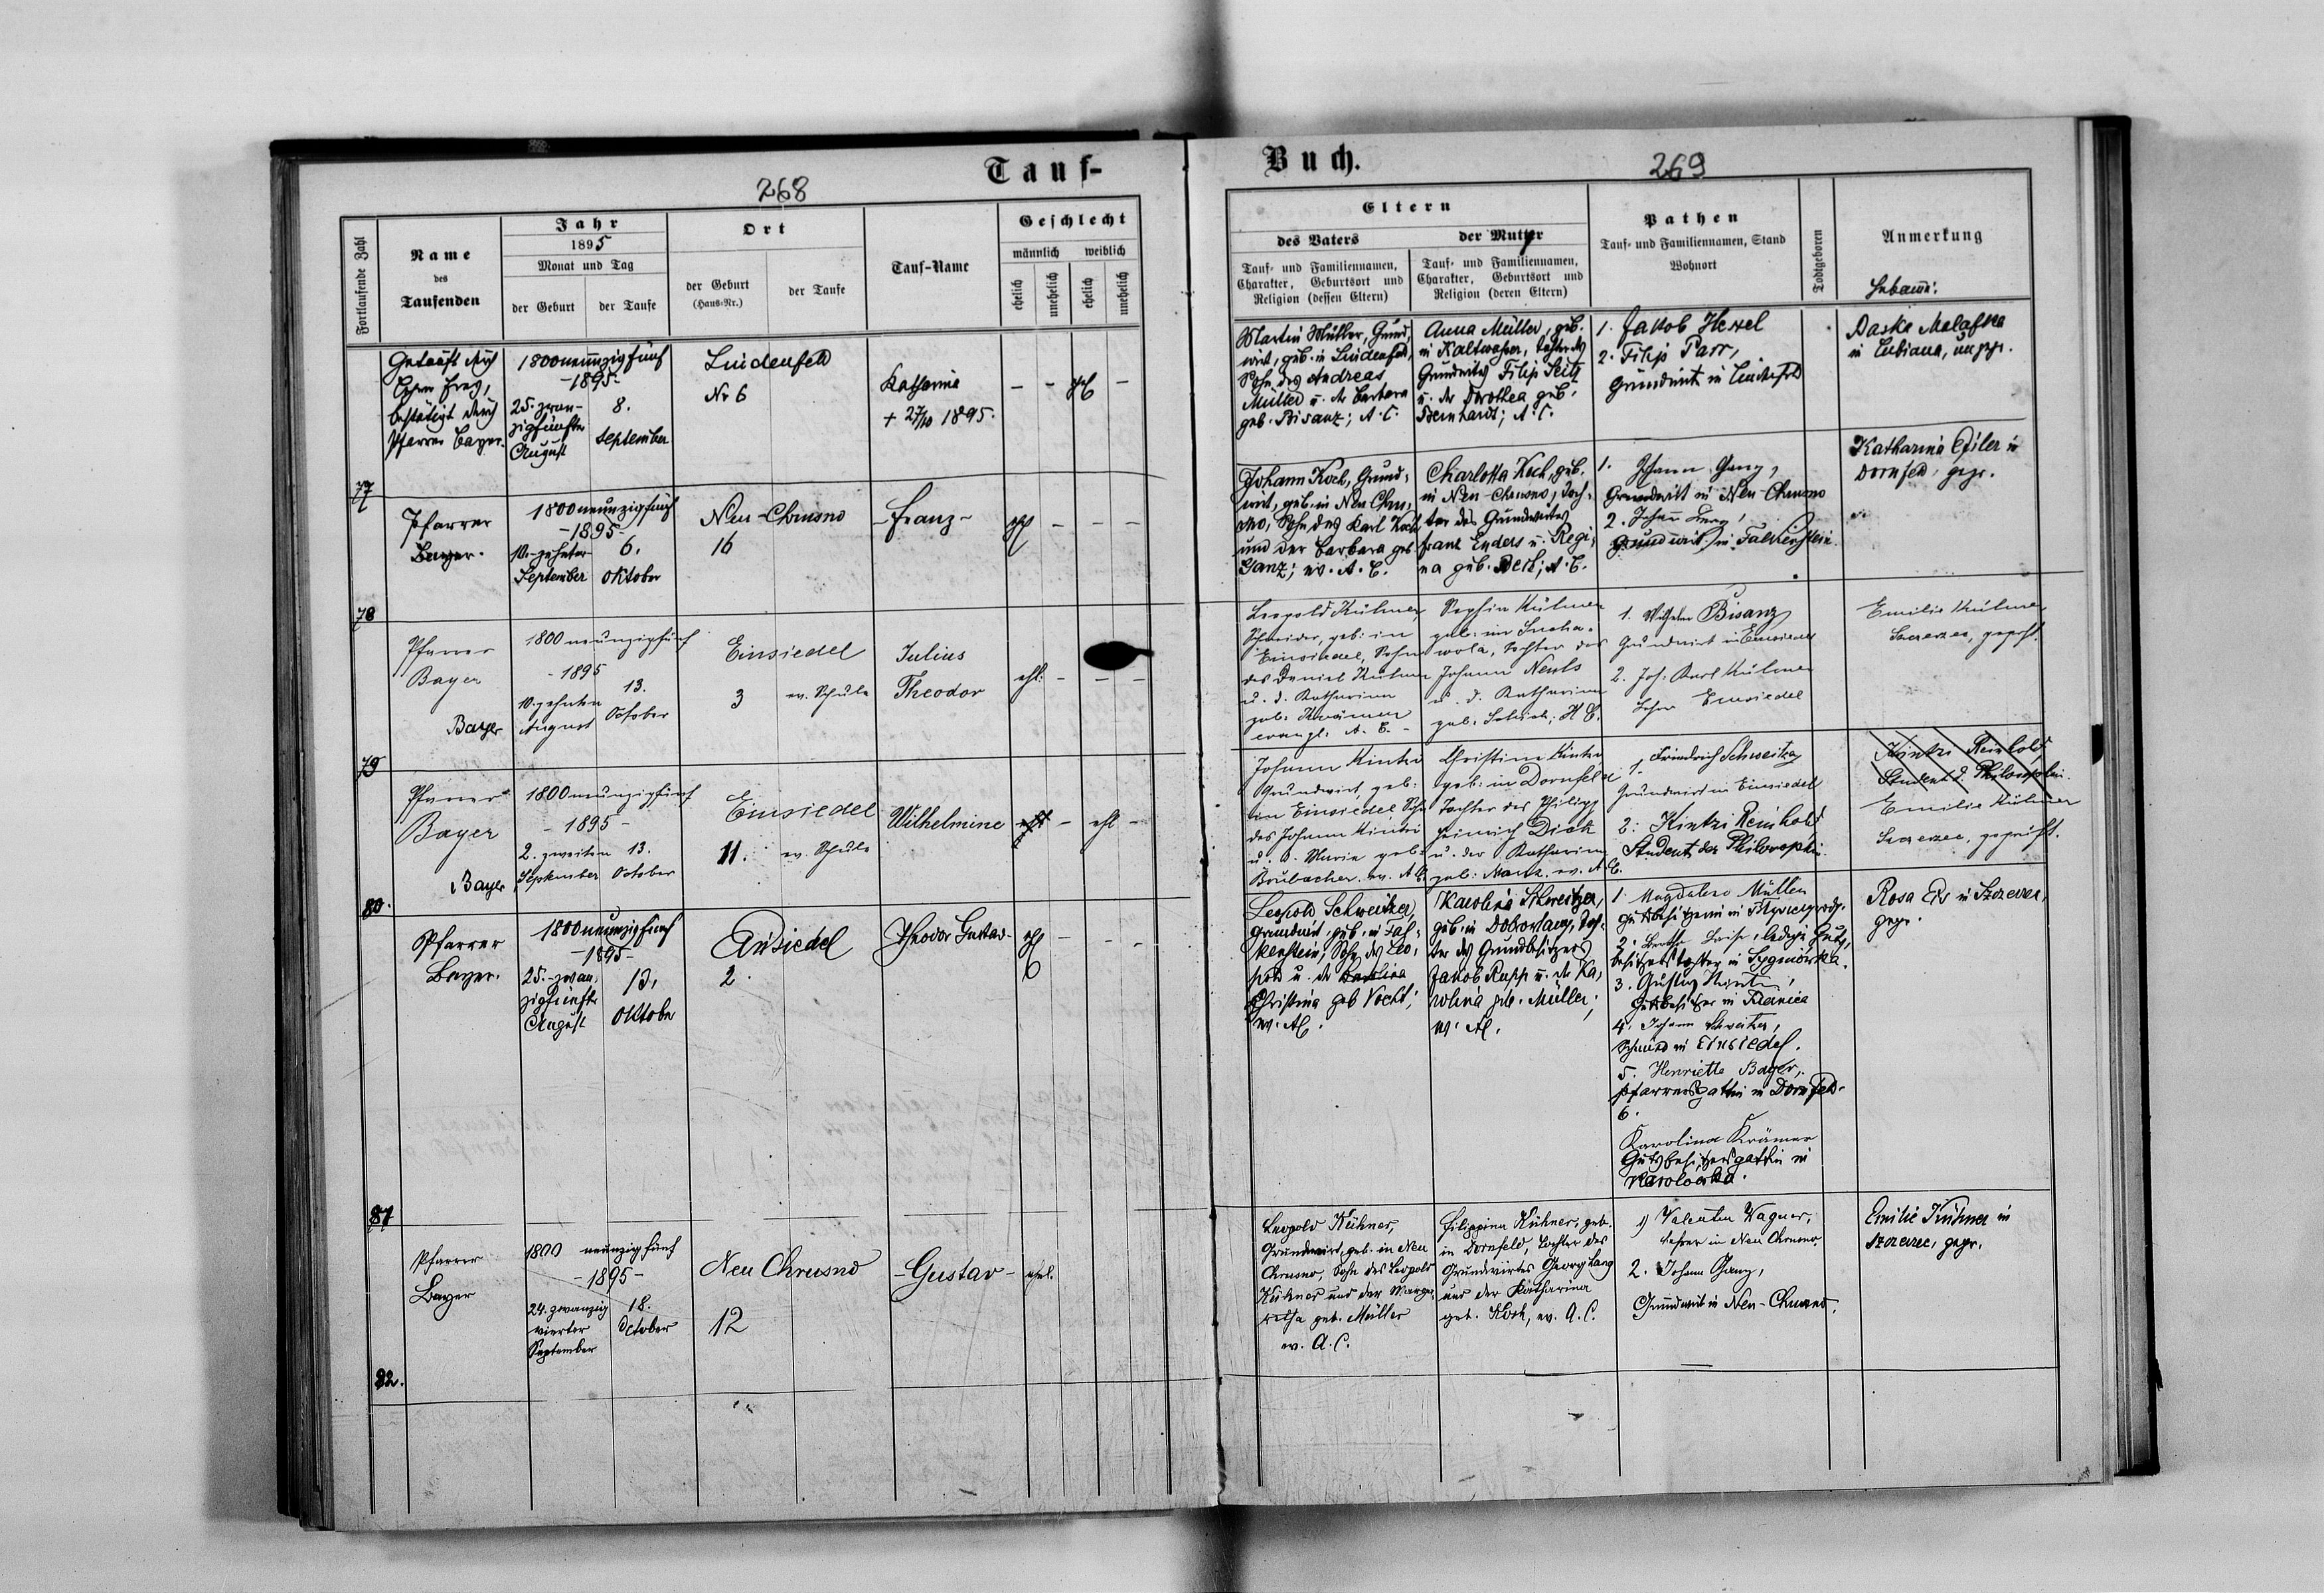 Tauf-
Buch.
268
269
Fortlaufende Zahl
Name
des
Taufenden
Jahr
1895
Monat und Tag
der Geburt
der Taufe
Ort
der Geburt
(Haus-Nr.)
der Taufe
Tauf-Name
Geschlecht
männlich
weiblich
ehelich
unehelich
ehelich
unehelich
Eltern
des Vaters
der Mutter
Tauf- und Familiennamen,
Charakter, Geburtsort und
Religion (dessen Eltern)
Tauf- und Familiennamen,
Charakter, Geburtsort und
Religion (deren Eltern)
Pathen
Tauf- und Familiennamen, Stand
Wohnort
Todtgeboren
Anmerkung
77
Getauft durch
bestätigt durch
Pfarrer Bayer.
1800neunzigfünf
-1895-
25. zwan-
zigfünfte
August
8.
September
Lindenfeld
Nr 6
Katharina
+ 27/10 1895.
- - -
Martin Müller, Grund-
wirt, geb. in Lindenfeld,
Sohn des Andreas
Müller u. der Barbara
geb. Bisanz; A.C.
Anna Müller, geb.
in Kaltwasser, Tochter des
Grundwirtes Filip Seitz
u. der Dorothea geb.
Bernhardt; A.C.
1. Jakob Hexel
2. Filip Parr,
Grundwirt in Lindenfeld
in Lubiana, ungepr.
78
Pfarrer
Bayer.
1800neunzigfünf
-1895-
10.-zehnter
September
6.
Oktober
Neu-Chrusno
16
-Franz-
- - -
Johann Koch, Grund-
wirt, geb. in Neu Chru-
sno, Sohn des Karl Koch
und der Barbara geb.
Ganz; ev. A.C.
Charlotta Koch, geb.
in Neu-Chrusno, Toch-
ter des Grundwirtes
Franz Enders u. Regi-
na geb. Beck; A.C.
1. Johann Ganz,
Grundwirt in Neu-Chrusno
2. Johann
Grundwirt in Falkenstein.
Katharina in
Dornfeld, gepr.
79
Pfarrer
Bayer
Bayer
1800 neunzigfünf
-1895
10. zehnten
August
13.
October
Einsiedel
3
ev. Schule
Julius
Theodor
ehl.
- - -
Leopold Kühner,
Schneider, geb: in
Einsiedel, Sohn
des Daniel Kühner
u. d. Katharina
geb: Krämer
evangl: A.C.-
Sophia Kühner
geb: in Sucha-
wola, Tochter des
Johann Neuls
u. d. Katharina
geb: Schick, H.C.
1. Wilhelm Bisanz
Grundwirt in Einsiedel
2. Joh: Karl Kühner
Lehrer Einsiedel
Emilie Kühner
Szczerzec, geprft.
80.
Pfarrer
Bayer
Bayer
1800 neunzigfünf
-1895-
2. zweiten
September
13.
October
Einsiedel
11.
ev. Schule
Wilhelmine
- ehl -
Johann Kintzi
Grundwirt, geb:
in Einsiedel, Sohn
des Johann Kintzi
u. d. Maria geb:
Brubacher. ev. A.C.
Christine Kintzi
geb: in Dornfeld
Tochter des Philipp
Heinrich Dick
u. der Katharina
geb: Manz. ev. A.C.
1. Friedrich Schweitzer
Grundwirt in Einsiedel
2: Kintzi Reinhold
Student der Philosophie.
Kintzi Reinhold,
Student d. Philosophie.
Emilie Kühner
Szczerzec, geprüft.
81
Pfarrer
Bayer.
1800neunzigfünf
-1895-
25.-zwan-
zigfünfte
August
13.
Oktober
Einsiedel
2.
Theodor Gustav-
- - -
Leopold Schweitzer,
Grundwirt, geb. in Fal-
kenstein, Sohn des Leo-
pold u. der Karolina
Christina geb.
ev. AC.
Karolina Schweitzer,
geb. in Toch-
ter des Grundbesitzers
Jakob Rupp u. der Ka-
rolina geb. Müller;
ev. AC.
1. Magdalena Müller
Gutsbesitzerin in
2. Bertha ledige Guts-
besitzerstochter in
3. Gustav
Gutsbesitzer in
4. Johann Schweitzer,
Schmied in Einsiedel.
5. Henriette Bayer,
Pfarrersgattin in Dornfeld.
6.
Karolina Krämer
Gutsbesitzersgattin in
Karolowka.
Rosa in Szczerzec,
gepr.
82.
Pfarrer
Bayer
1800 neunzig fünf
-1895-
24. zwanzig
vierter
September
18.
October
Neu Chrusno
12
-Gustav-
ehel.
Leopold Kühner,
Grundwirt, geb. in Neu
Chrusno, Sohn des Leopold
Kühner und der Marga-
retha geb. Müller
ev. A.C.
Filippina Kühner, geb.
in Dornfeld, Tochter des
Grundwirtes Georg Lang
und der Katharina
geb. Koch, ev. A.C.
1) Valentin Wagner,
Lehrer in Neu Chrusno.
2. Johann Ganz,
Grundwirt in Neu-Chrusno.
Emilie Kühner in
Szczerzec, gepr.